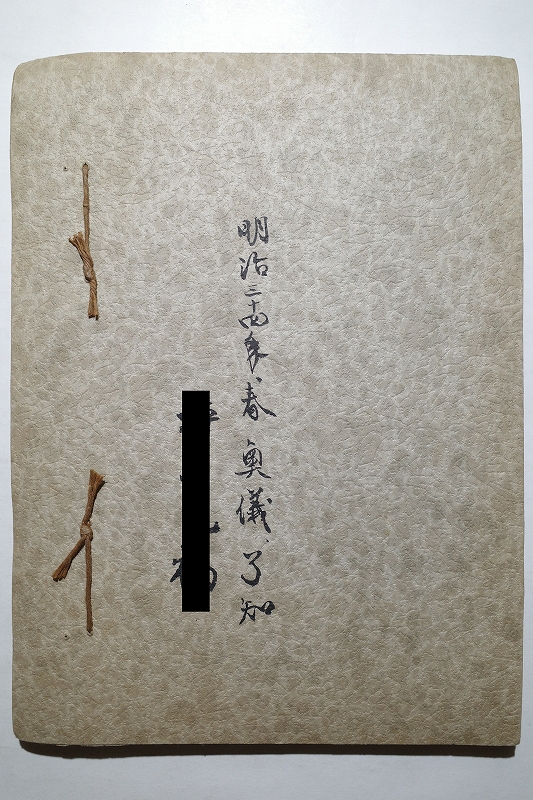 明治三十四年春奥儀了知